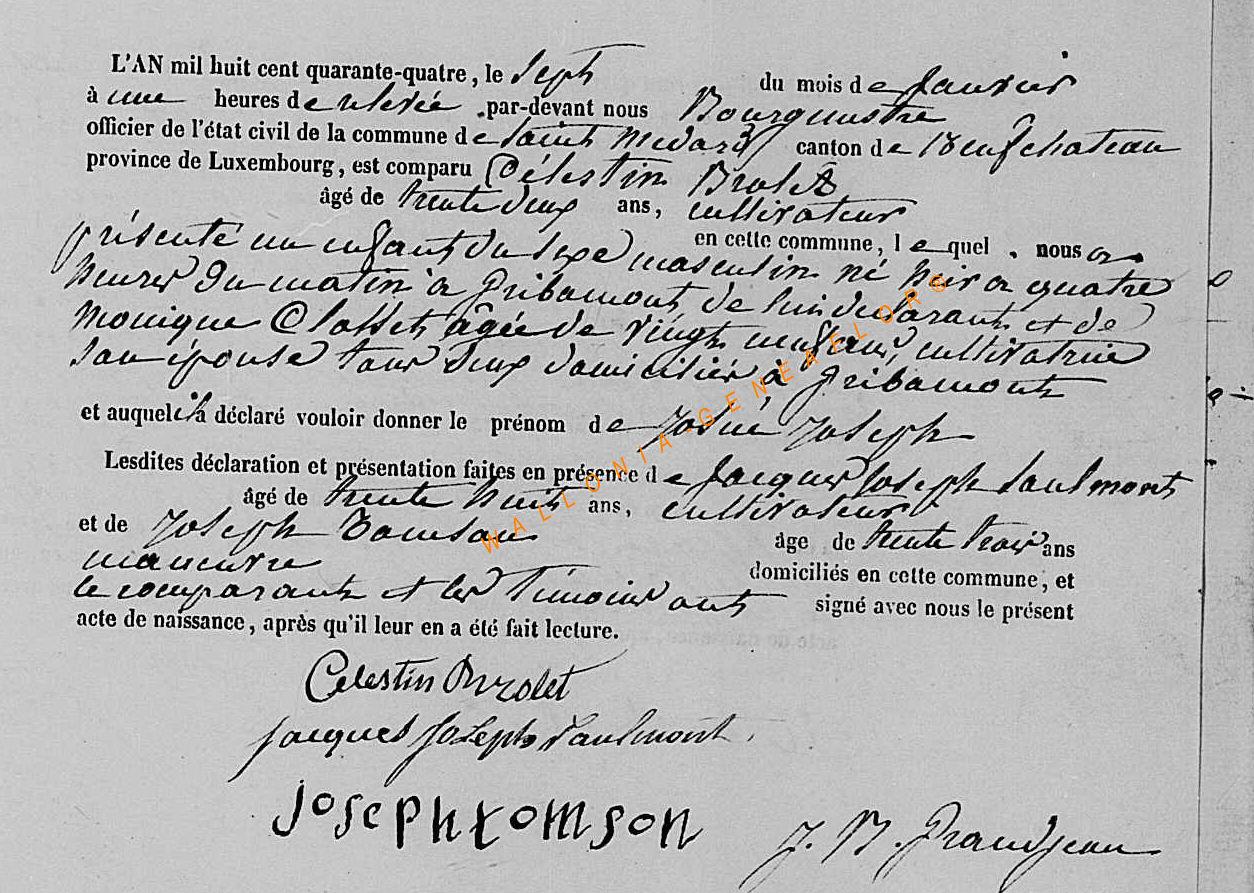 L'AN mil huit cent quarante-quatre, le Sept du mois de Janvier
à une heures de relevée par-devant nous Bourgmestre
officier de l'état civil de la commune de Saint Medard canton de Neufchateau
province de Luxembourg, est comparu Célestin Brolet
âgé de trente deux ans, cultivateur
en cette commune, lequel nous a
présenté un enfant du sexe masculin né hier a quatre
heures du matin à Gribomont de lui declarant et de
Monique Closset âgée de vingt neuf ans, cultivatrice
son épouse tous deux domiciliés à Gribomont
et auquel il a déclaré vouloir donner le prénom de Josué Joseph
Lesdites déclaration et présentation faites en présence de Jacques Joseph Saulmont
âgé de trente huit ans, cultivateur
et de Joseph Tomson âge de trente trois ans
manœuvre domiciliés en cette commune, et
le comparant et les témoins ont signé avec nous le présent
acte de naissance, après qu'il leur en a été fait lecture.
Celestin Brolet
jacques joseph Saulmont
joseph tomson
J. B. Grandjean
WALLONIA-GENEAELORG